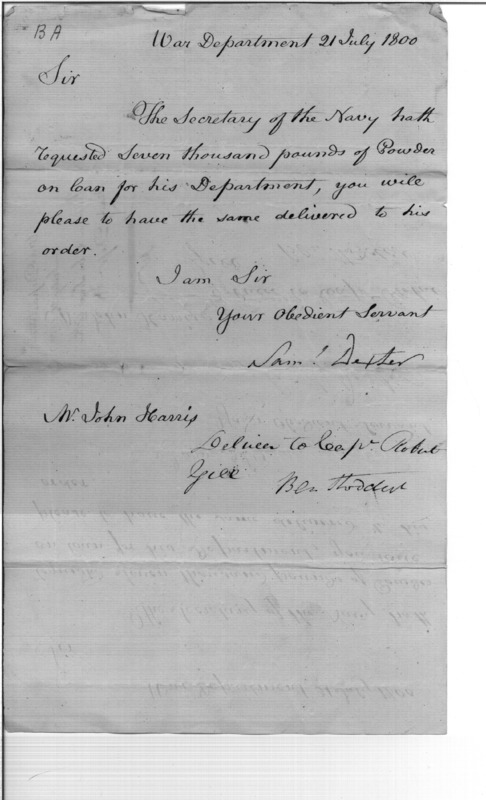 BA
War Department 21 July 1800
Sir
The Secretary of the Navy hath
requested Seven thousand pounds of Powder
on loan for his Department, you will
please to have the same delivered to his
order.
I am Sir
Your Obedient Servant
Saml. Dexter
Mr. John Harris
Deliver to Capt. Robert
Gill
Ben Stoddert